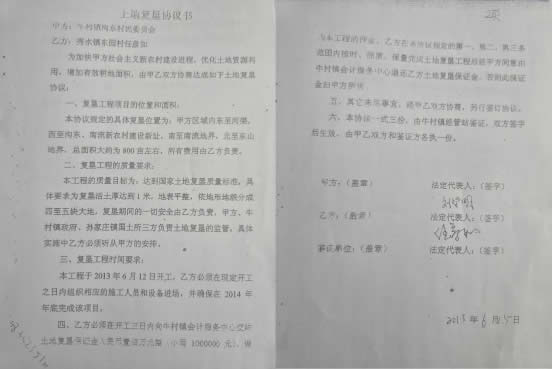 土地复垦协议书
甲方：牛村镇沟东村民委员会
乙方：秀水镇东园村任彦如
为加快甲方社会主义新农村建设进程，优化土地资源利
用，增加有效耕地面积，由甲乙双方协商达成如下土地复垦
协议：
一、复垦工程项目的位置和面积：
本协议规定的具体复垦位置为：甲方区域内东至河渠，
西至沟东、南流新农村建设新址，南至南流地界，北至东山
地界，总面积大约为800亩左右，所有费用由乙方负责。
二、复垦工程的质量要求：
本工程的质量目标为：达到国家土地复垦质量标准，具
体要求为复垦活土厚达到1米，地表平整，依地形地级分成
四至五块大地，复垦期间的一切安全由乙方负责，甲方、牛
村镇政府、孙家庄镇国土所三方负责土地复垦的监管，具体
实施中乙方必须听从甲方的安排。
三、复垦工程时间要求：
本工程于2013年6月12日开工，乙方必须在规定开工
之日内组织相应的施工人员和设备进场，并确保在2014年
年底完成该项目。
四、乙方必须在开工三日内向牛村镇会计服务中心交纳
土地复垦保证金人民币壹百万元整（小写1000000元），做
为本工程的押金。乙方在本协议规定的第一、第二、第三条
范围内按时、按质、保量完成土地复垦工程后经甲方同意由
牛村镇会计服务中心退还乙方土地复垦保证金，否则此保证
金归甲方所有
五、其它未尽事宜，经甲乙双方协商，另行签订协议。
六、本协议一式三份，由牛村镇经管站鉴证，双方签字
后生效，由甲乙双方和鉴证方各执一份。
甲方：（盖章） 法定代表人：（签字）
乙方：（盖章） 法定代表人：（签字）
鉴证单位：（盖章） 法定代表人：（签字）
2013年6月5日